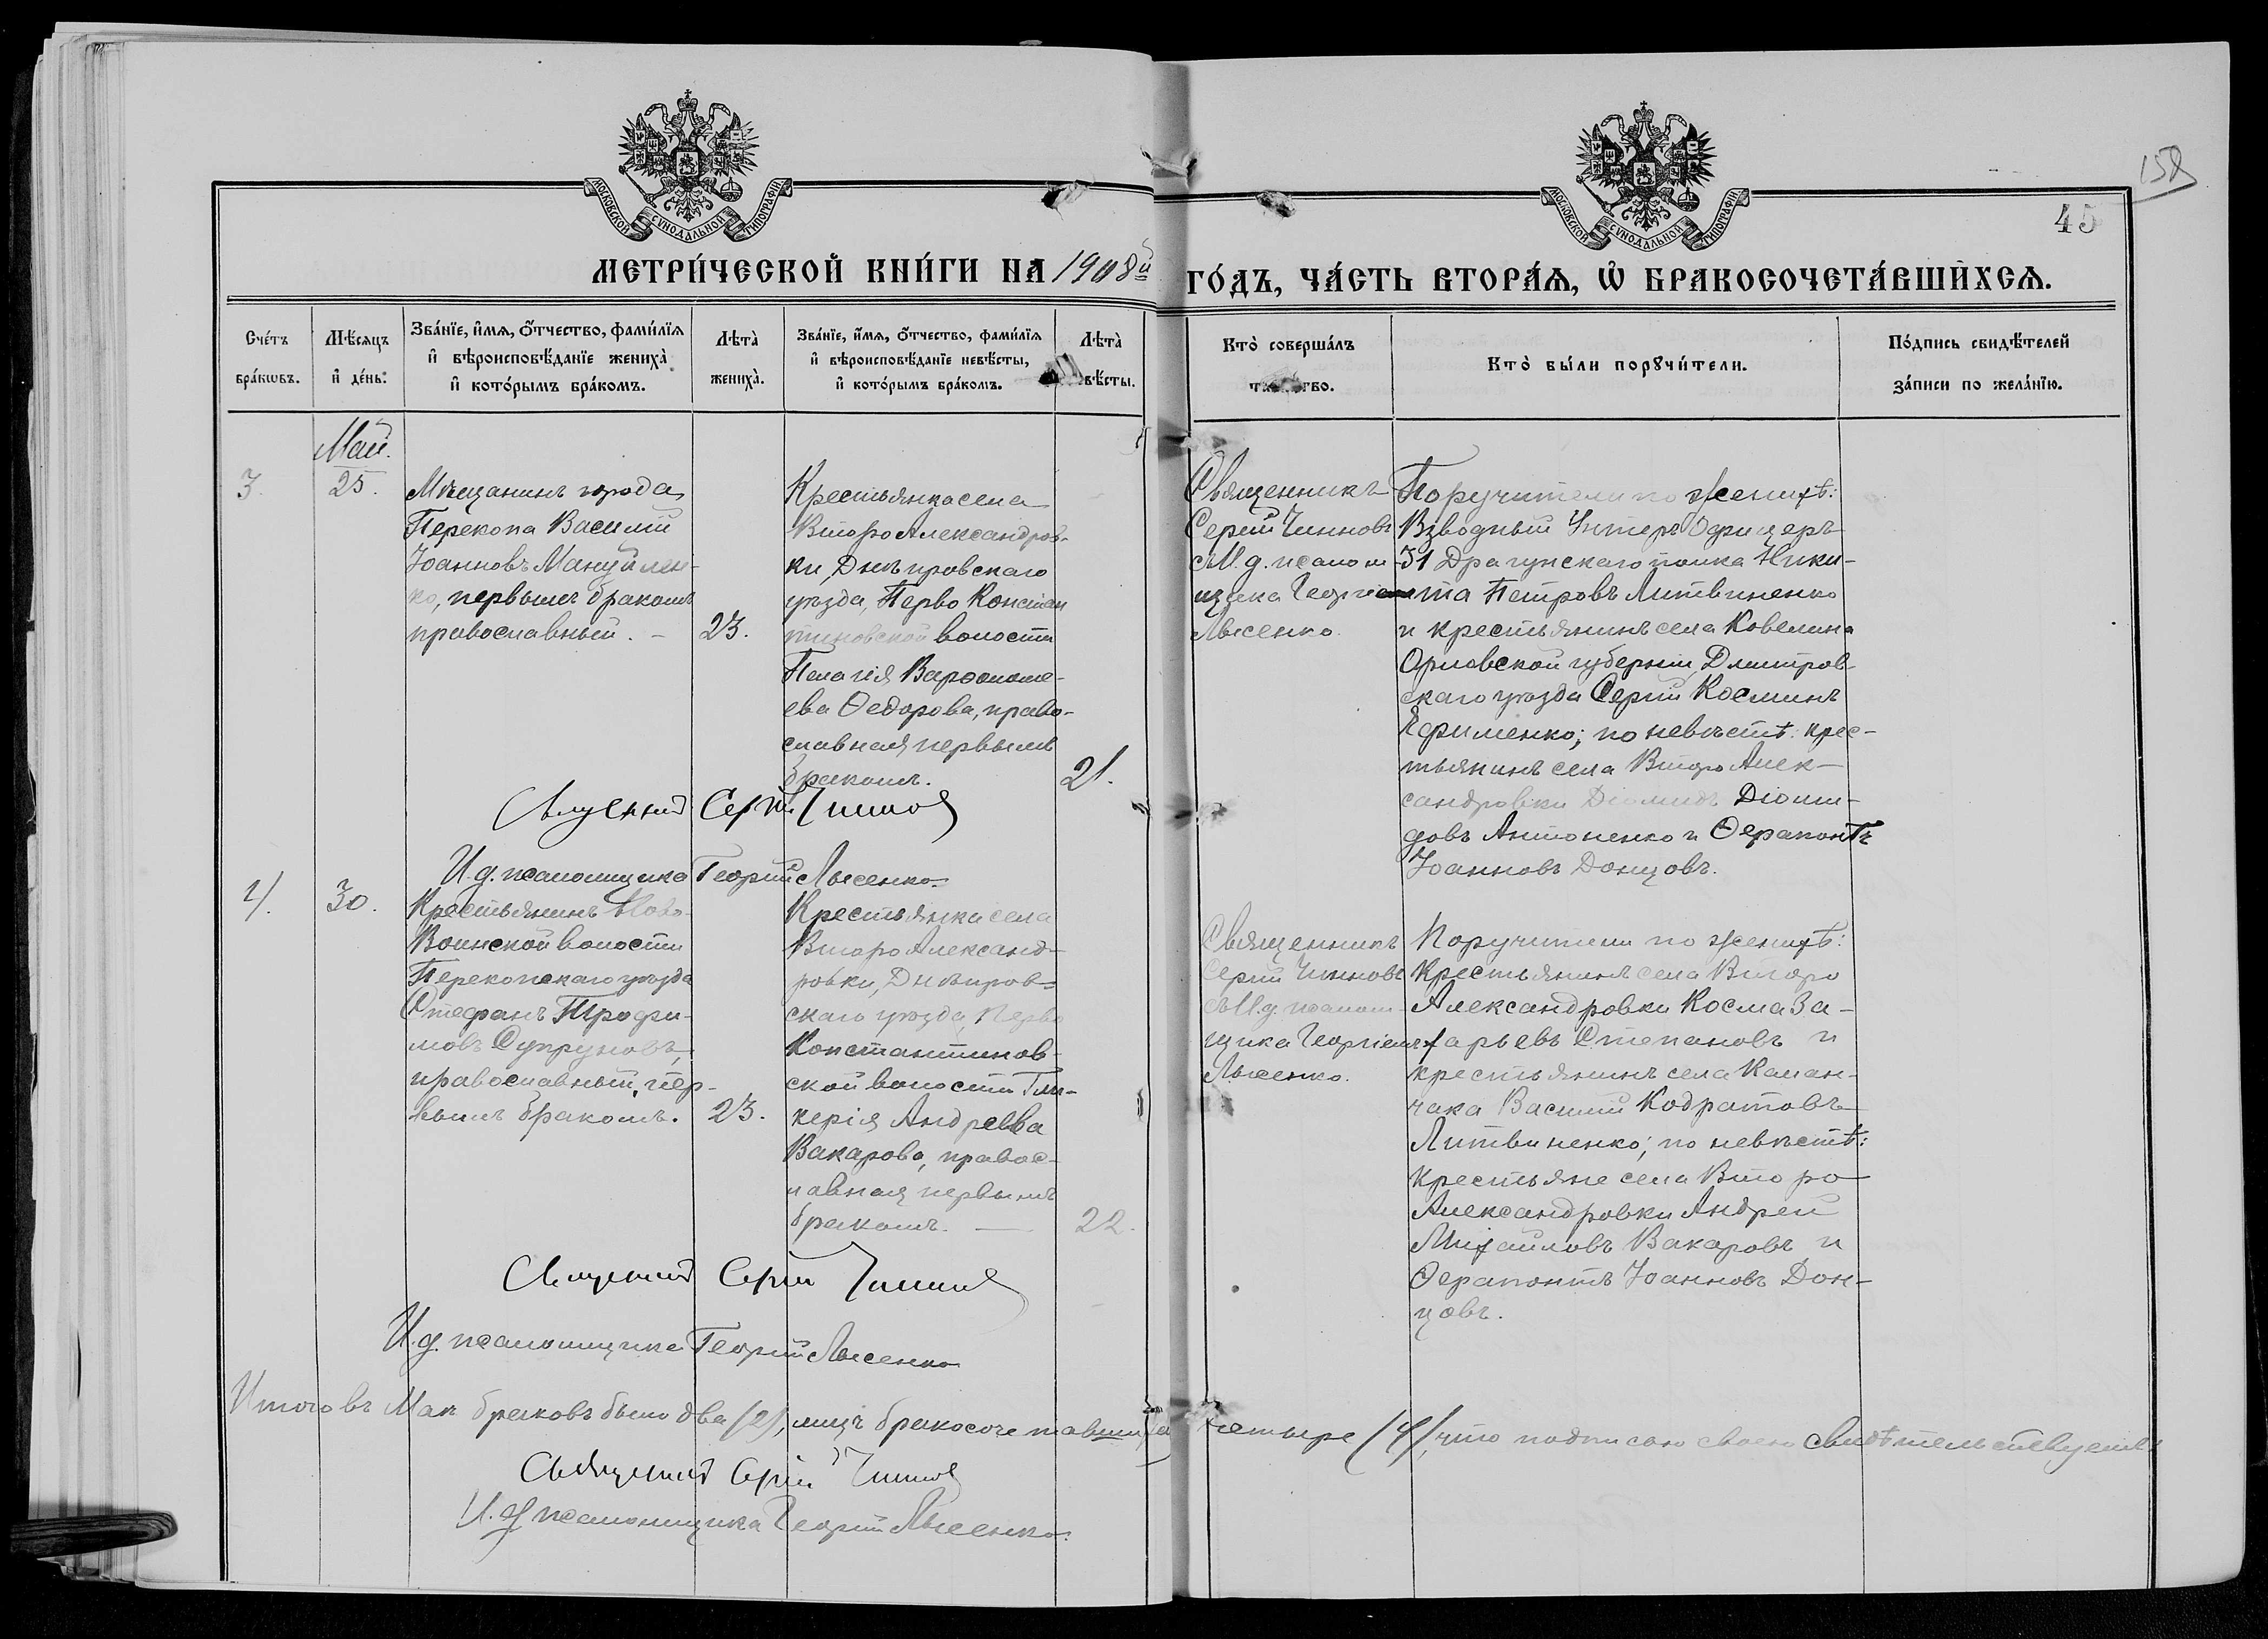 158
45
МОСКОВСКОЙ СУНОДАЛЬНОЙ ТИПОГРАФІИ
МОСКОВСКОЙ СУНОДАЛЬНОЙ ТИПОГРАФІИ
МЕТРИ́ЧЕСКОЙ КНИ́ГИ НА 1908й ГО́ДЪ, ЧА́СТЬ ВТОРА́Ѧ, Ѽ БРАКОСОЧЕТА́ВШИХСѦ.
Сче́тъ
бра́кѡвъ.
Мѣ́сяцъ
и҆ де́нь.
Зва́нїе, и҆́мѧ, ѻ҆́тчество, фами́лїѧ
и҆ вѣроисповѣ́данїе жениха̀
и҆ кото́рымъ бра́комъ.
Лѣта̀
жениха̀.
Зва́нїе, и҆́мѧ, ѻ҆́тчество, фами́лїѧ
и҆ вѣроисповѣ́данїе невѣ́сты,
и҆ кото́рымъ бра́комъ.
Лѣта̀
вѣ́сты.
Кто̀ соверша́лъ
та тво.
Кто̀ бы́ли порꙋчи́тели.
По́дпись свидѣ́телей
за́писи по жела́нїю.
Май.
3.
25.
Мѣщанинъ города
Перекопа Василій
Іоанновъ Мануйлен-
ко, первымъ бракомъ
православный. -
23.
Крестьянка села
Второ Александров-
ки, Днѣпровскаго
уѣзда, Перво Констан
тиновской волости
Пелагія Варѳоломе-
ева Ѳедорова, право-
славная первымъ
бракомъ.
21.
Священникъ
Сергій Чинновъ
съ И. д. псалом-
щика Георгіемъ
Лысенко.
Поручители по женихѣ:
Взводный Унтеръ Офицеръ
31 Драгунскаго полка Ники-
та Петровъ Литвиненко
и крестьянинъ села Ковелина
Орловской губерніи, Дмитров-
скаго уѣзда Сергій Косминъ
Ефименко; по невѣстѣ: крес-
тьянинъ села Второ Алек-
сандровки Діомидъ Діоми-
довъ Антоненко и Ѳерапонтъ
Іоанновъ Донцовъ.
Священникъ Сергій Чинновъ
И. д. псаломщика Георгій Лысенко
4.
30.
Крестьянинъ Ново-
Воинской волости
Перекопскаго уѣзда
Стефанъ Трофи-
мовъ Супруновъ,
православный, пер-
вымъ бракомъ.
23.
Крестьянка села
Второ Александ-
ровки, Днѣпров-
скаго уѣзда, Перво
Константинов-
ской волости Гли-
керія Андреева
Вакарова, правос-
лавная первымъ
бракомъ.
22.
Священникъ
Сергій Чинновъ
съ И. д. псалом-
щика Георгіемъ
Лысенко.
Поручители по женихѣ:
Крестьянинъ села Второ
Александровки Косма За-
харьевъ Степановъ и
крестьянинъ села Калан-
чака Василій Кодратовъ
Литвиненко; по невѣстѣ:
крестьяне села Второ
Александровки Андрей
Михайловъ Вакаровъ и
Ѳерапонтъ Іоанновъ Дон-
цовъ.
Священникъ Сергій Чинновъ
И. д. псаломщика Георгій Лысенко
Итого въ Маѣ браковъ было два (2), лицъ бракосочетавшихся четыре (4), что подписью своею свидѣтельствуемъ
Священникъ Сергій Чинновъ
И. д. псаломщика Георгій Лысенко.